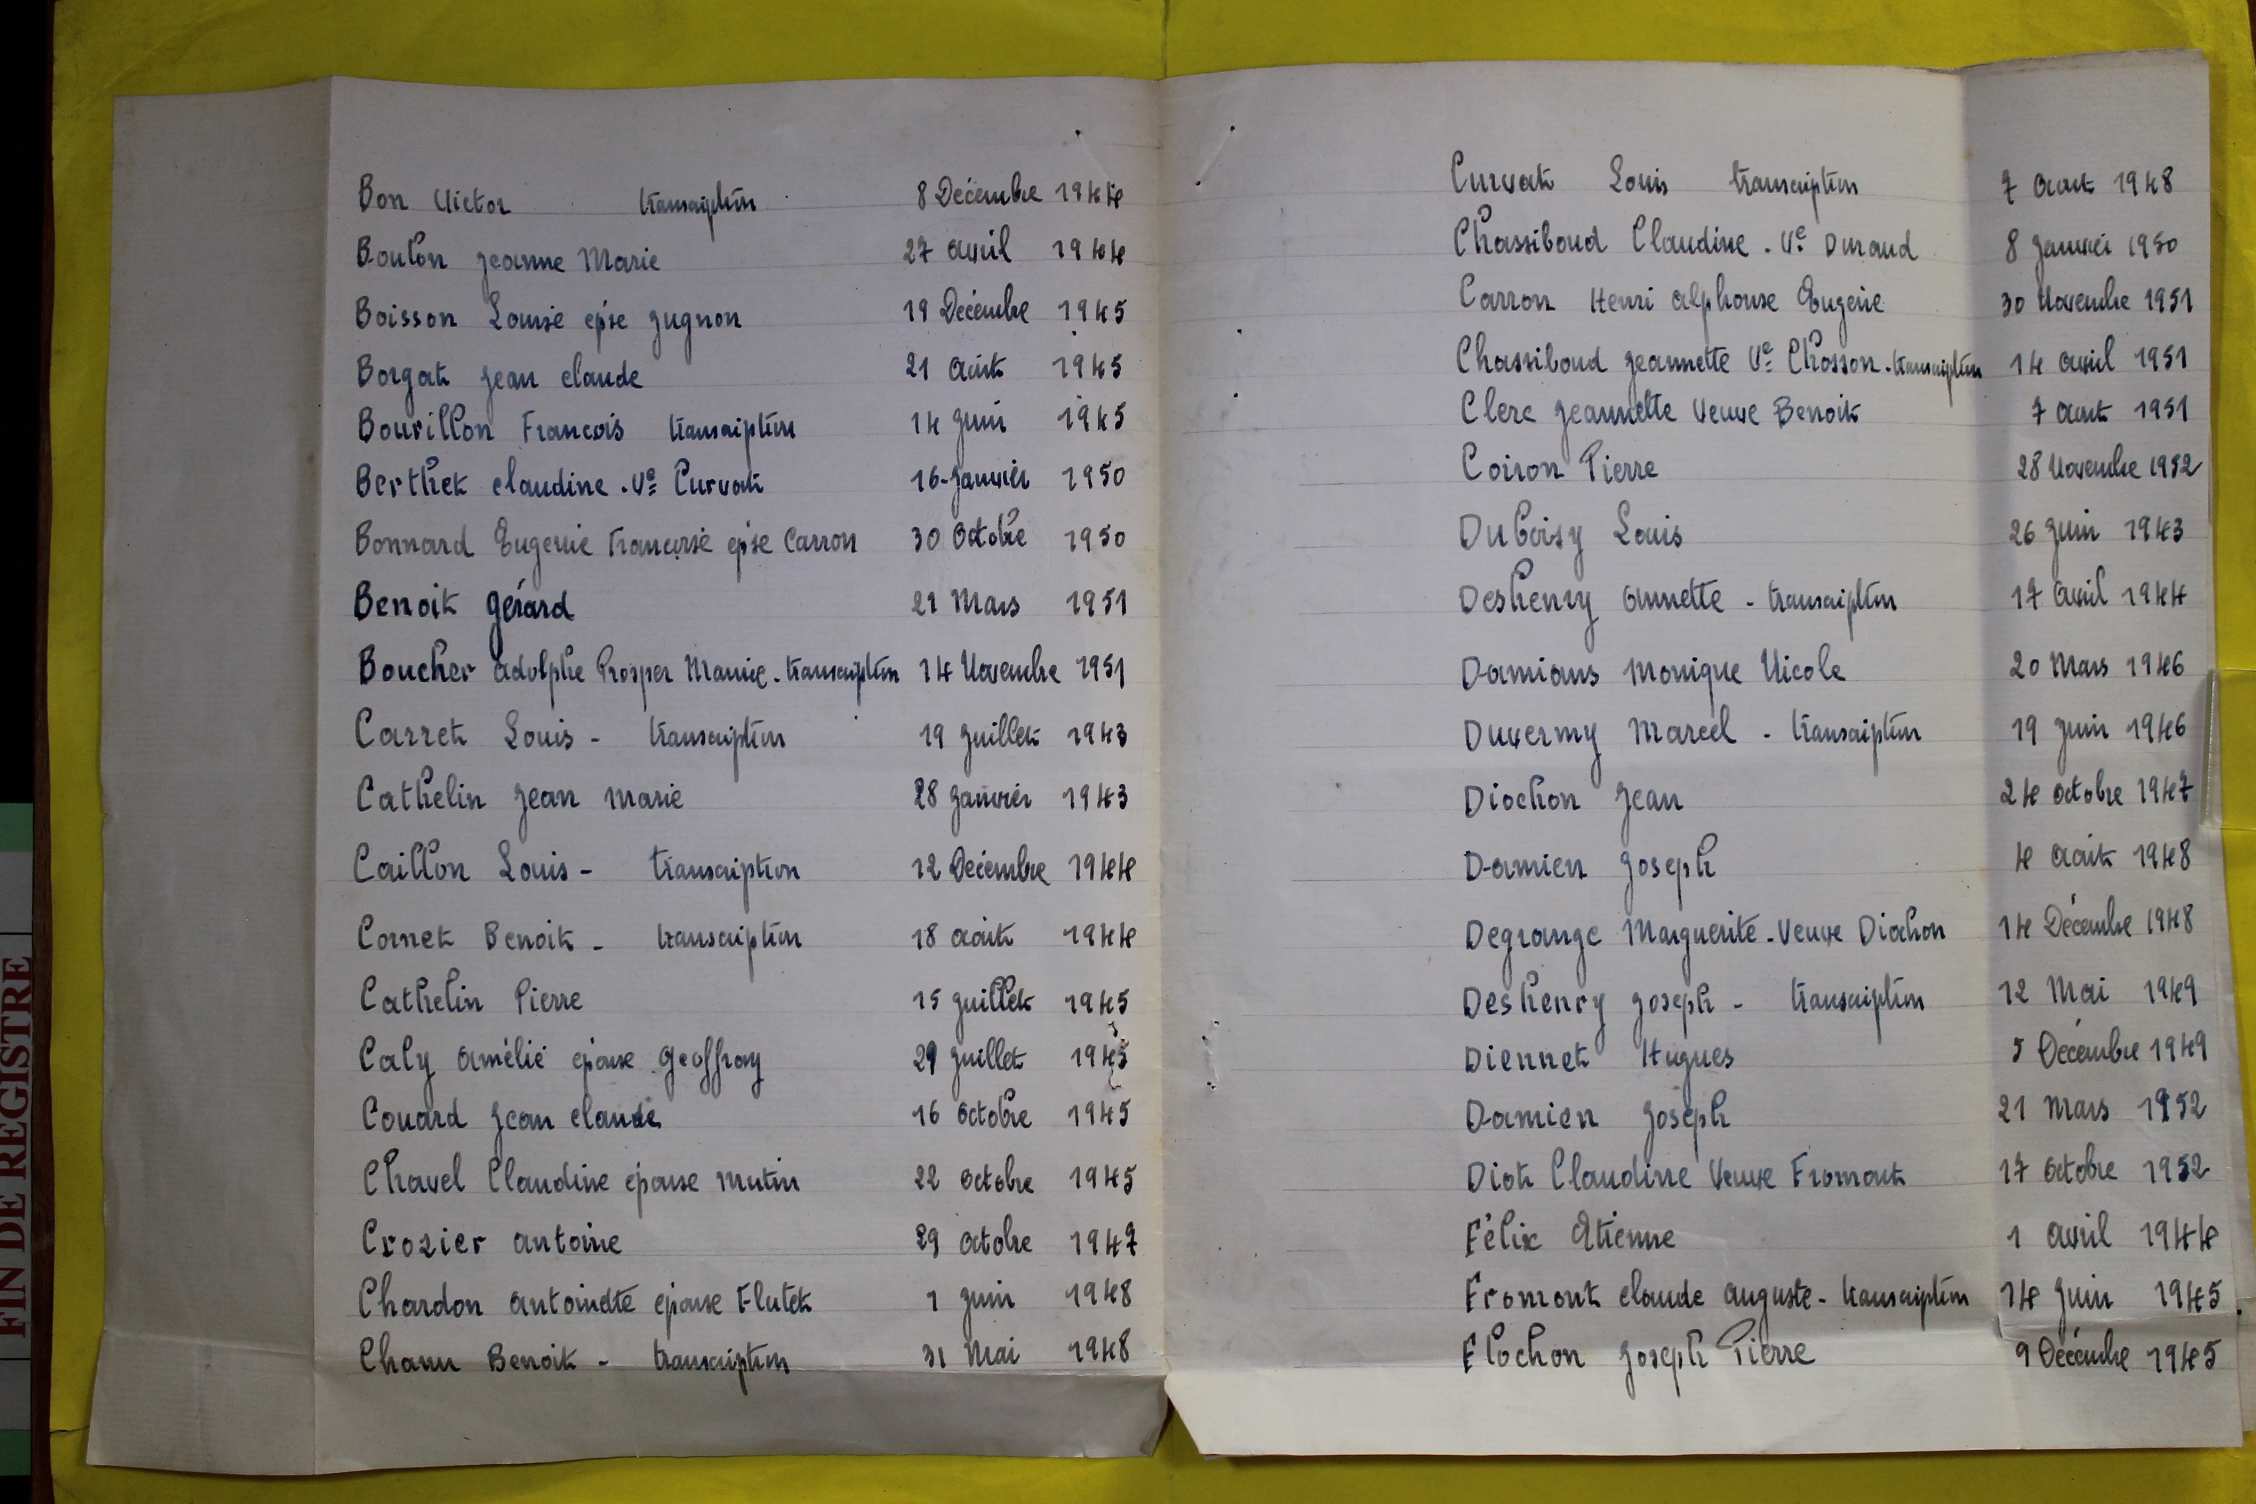 Bon Victor transcription 8 Décembre 1944
Boulon Jeanne Marie 27 avril 1944
Boisson Louise epse Jugnon 19 Décembre 1945
Borgat Jean claude 21 Août 1945
Bourillon Francois transcription 14 Juin 1945
Berthet claudine . Ve Curvat 16 Janvier 1950
Bonnard Eugenie Francoise epse Carron 30 Octobre 1950
Benoit Gérard 21 Mars 1951
Boucher Adolphe Prosper Marie - transcription 14 Novembre 1951
Carret Louis - transcription 19 Juillet 1943
Cathelin Jean Marie 28 Janvier 1943
Caillon Louis - transcription 12 Décembre 1944
Cornet Benoit - transcription 18 Août 1944
Cathelin Pierre 15 Juillet 1945
Caly Amélie épouse Geoffray 29 Juillet 1945
Couard Jean claude 16 Octobre 1945
Chavel Claudine épouse Mutin 22 Octobre 1945
Crozier Antoine 29 Octobre 1947
Chardon Antoinette épouse Flutet 1 Juin 1948
Benoit - transcription 31 Mai 1948
Curvat Louis transcription 7 Aout 1948
Chassiboud Claudine . Ve Durand 8 Janvier 1950
Carron Henri Alphonse Eugène 30 Novembre 1951
Chassiboud Jeannette Ve Chosson - transcription 14 Avril 1951
Clerc Jeannette Veuve Benoit 7 Aout 1951
Coiron Pierre 28 Novembre 1952
Duboisy Louis 26 Juin 1943
Deshenry Annette - transcription 17 Avril 1944
Damians Monique Nicole 20 Mars 1946
Duvermy Marcel - transcription 19 Juin 1946
Diochon Jean 24 Octobre 1947
Damien Joseph 4 Août 1948
Degrange Marguerite - Veuve Diochon 14 Décembre 1948
Deshenry Joseph - transcription 12 Mai 1949
Diennet Hugues 5 Décembre 1949
Damien Joseph 21 Mars 1952
Diot Claudine Veuve Fromont 17 Octobre 1952
Félix Etienne 1 Avril 1944
Fromont claude Auguste - transcription 14 Juin 1945
Flochon Joseph Pierre 9 Décembre 1945
FIN DE REGISTRE